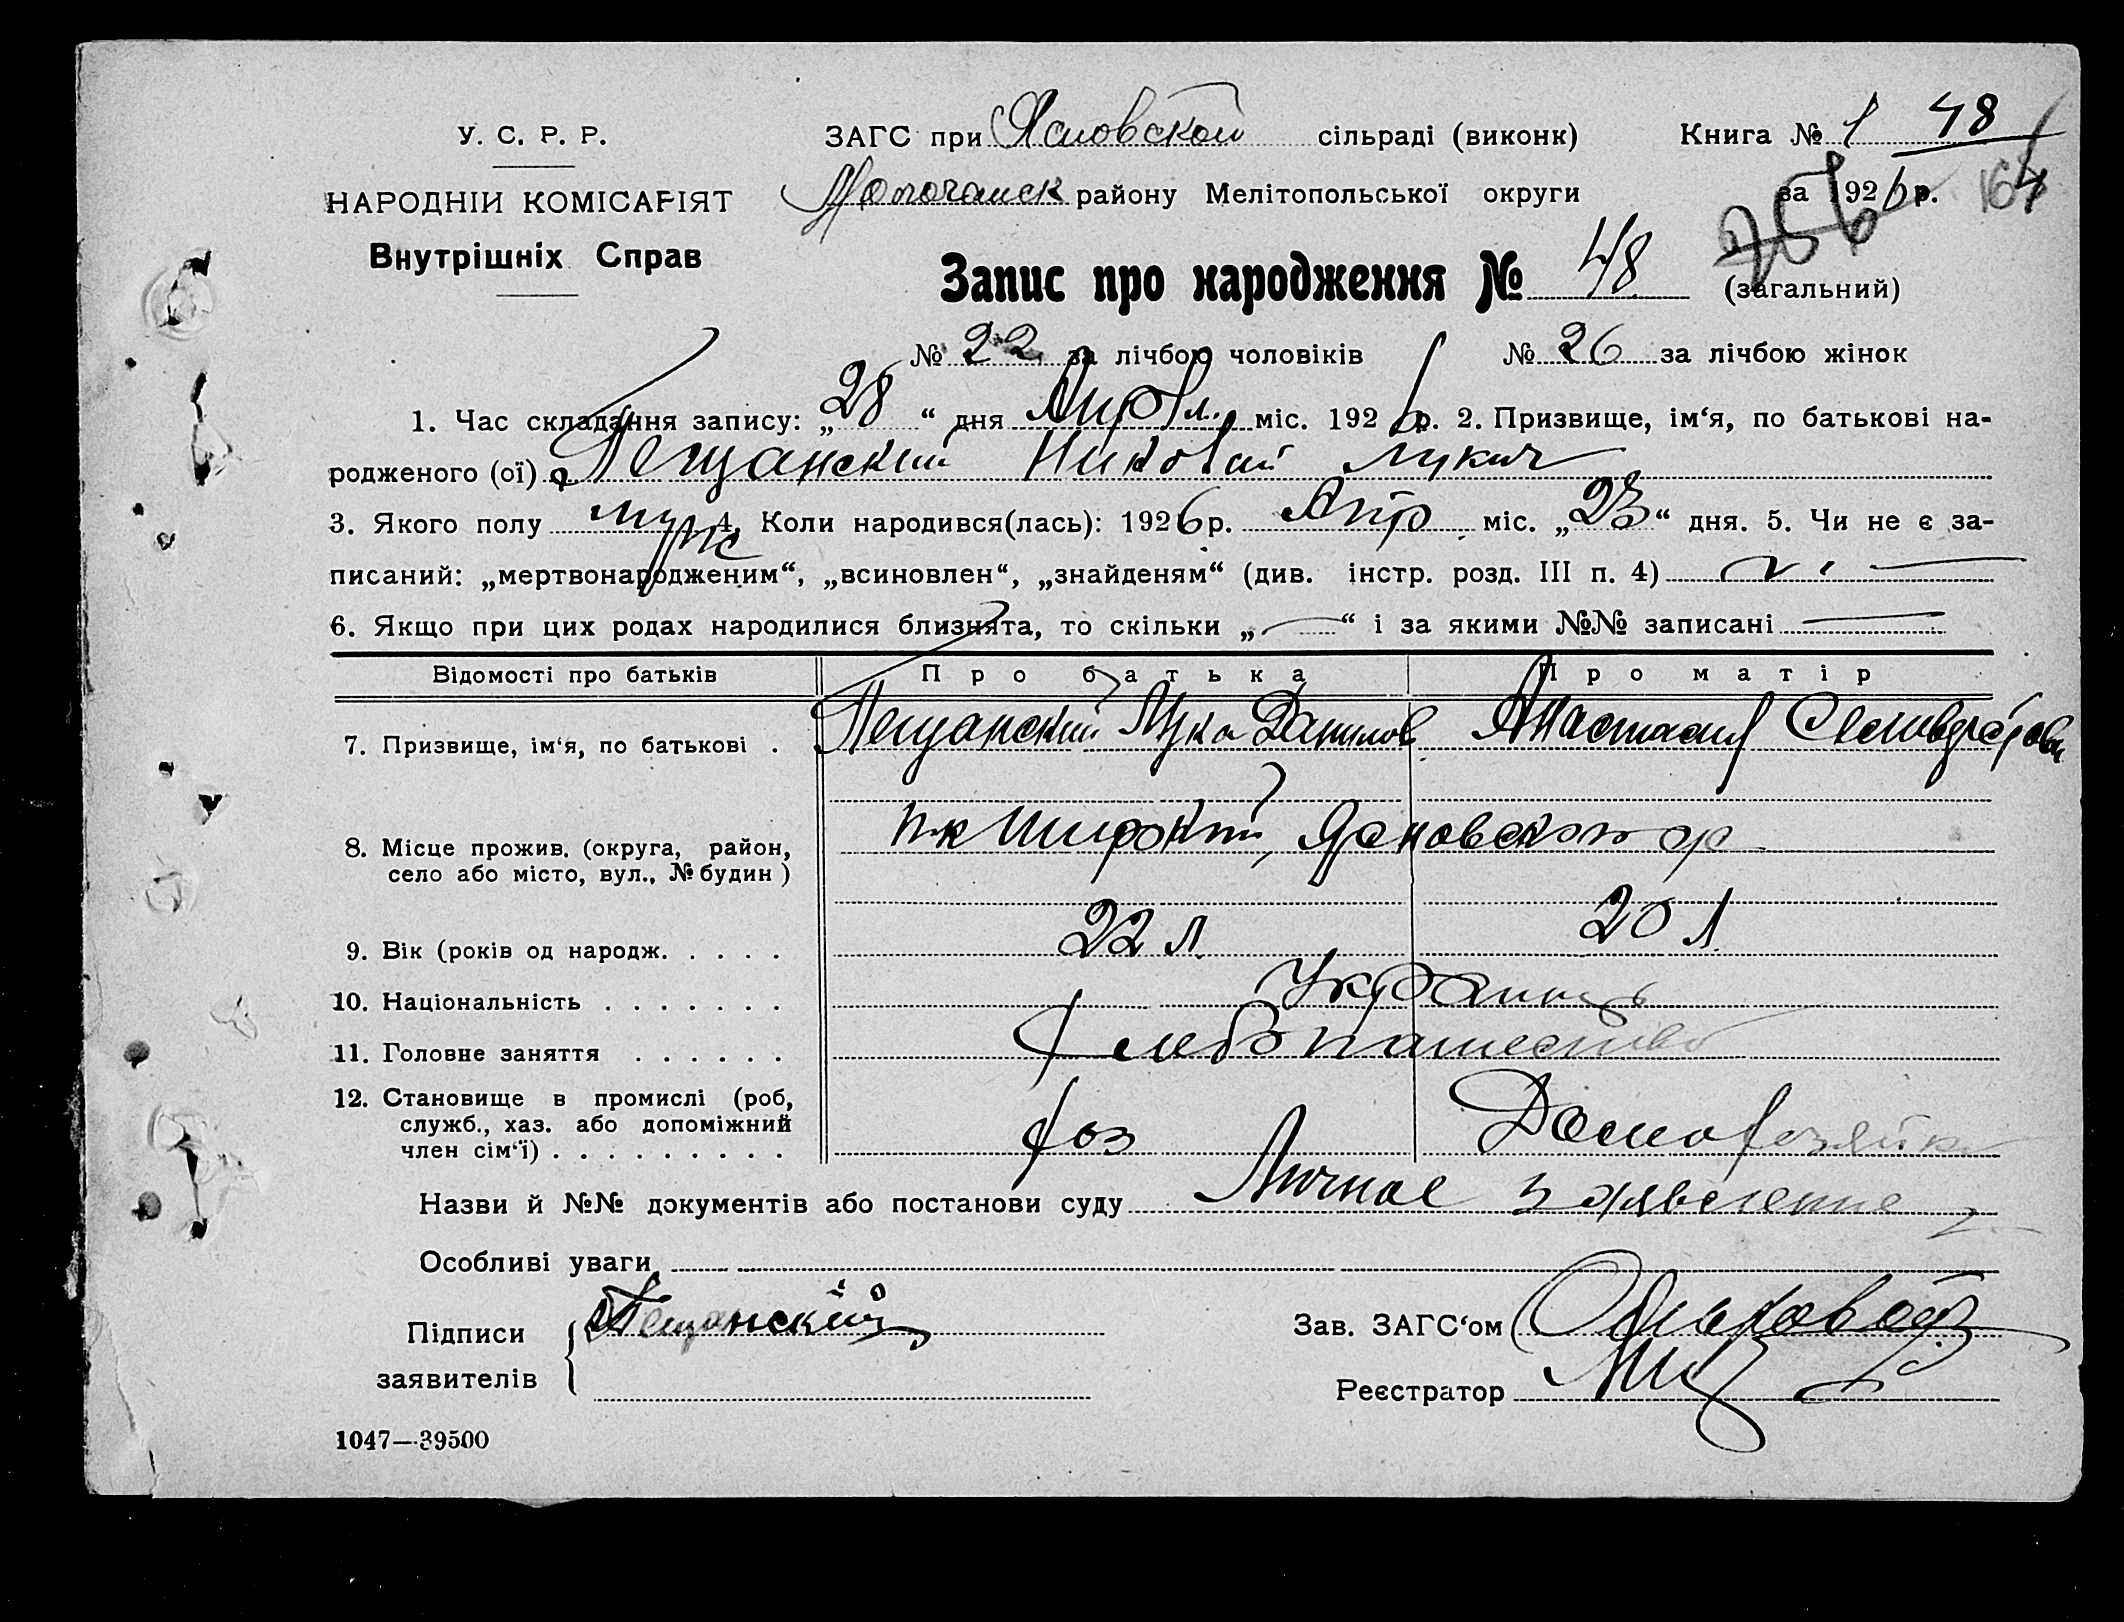 У. С. Р. Р.
НАРОДНІЙ КОМІСАРІЯТ
Внутрішніх Справ
ЗАГС при Ясновской сільраді (виконк) Книга № 1 48
Молочанск району Мелітопольської округи за 1926 р. 164
Запис про народження № 48 (загальний)
№ 22 за лічбою чоловіків № 26 за лічбою жінок
1. Час складання запису: „28“ дня Апрвл. міс. 1926 р. 2. Призвище, ім‘я, по батькові на-
родженого (ої) Пещанский Николай Лукич
3. Якого полу муж 4. Коли народився(лась): 1926 р. Апр міс. „23“ дня. 5. Чи не є за-
писаний: „мертвонародженим“, „всиновлен“, „знайденям“ (див. інстр. розд. III п. 4)
6. Якщо при цих родах народилися близнята, то скільки „—“ і за якими №№ записані —
Відомості про батьків Про батька Про матір
7. Призвище, ім‘я, по батькові . Пещанский Лука Данилов Анастасия
8. Місце прожив. (округа, район,
село або місто, вул., № будин ) Широкий,
9. Вік (років од народж. . . . . 22 л. 20 л
10. Національність . . . . . . . Украинць
11. Головне заняття . . . . . . Хлебопашество
12. Становище в промислі (роб,
служб., хаз. або допоміжний
член сім‘ї) . . . . . . . . . хоз Домохозяйка
Назви й №№ документів або постанови суду Личное заявление
Особливі уваги
Підписи
заявителів
Пещанский
Зав. ЗАГС‘ом
Реєстратор
1047—39500